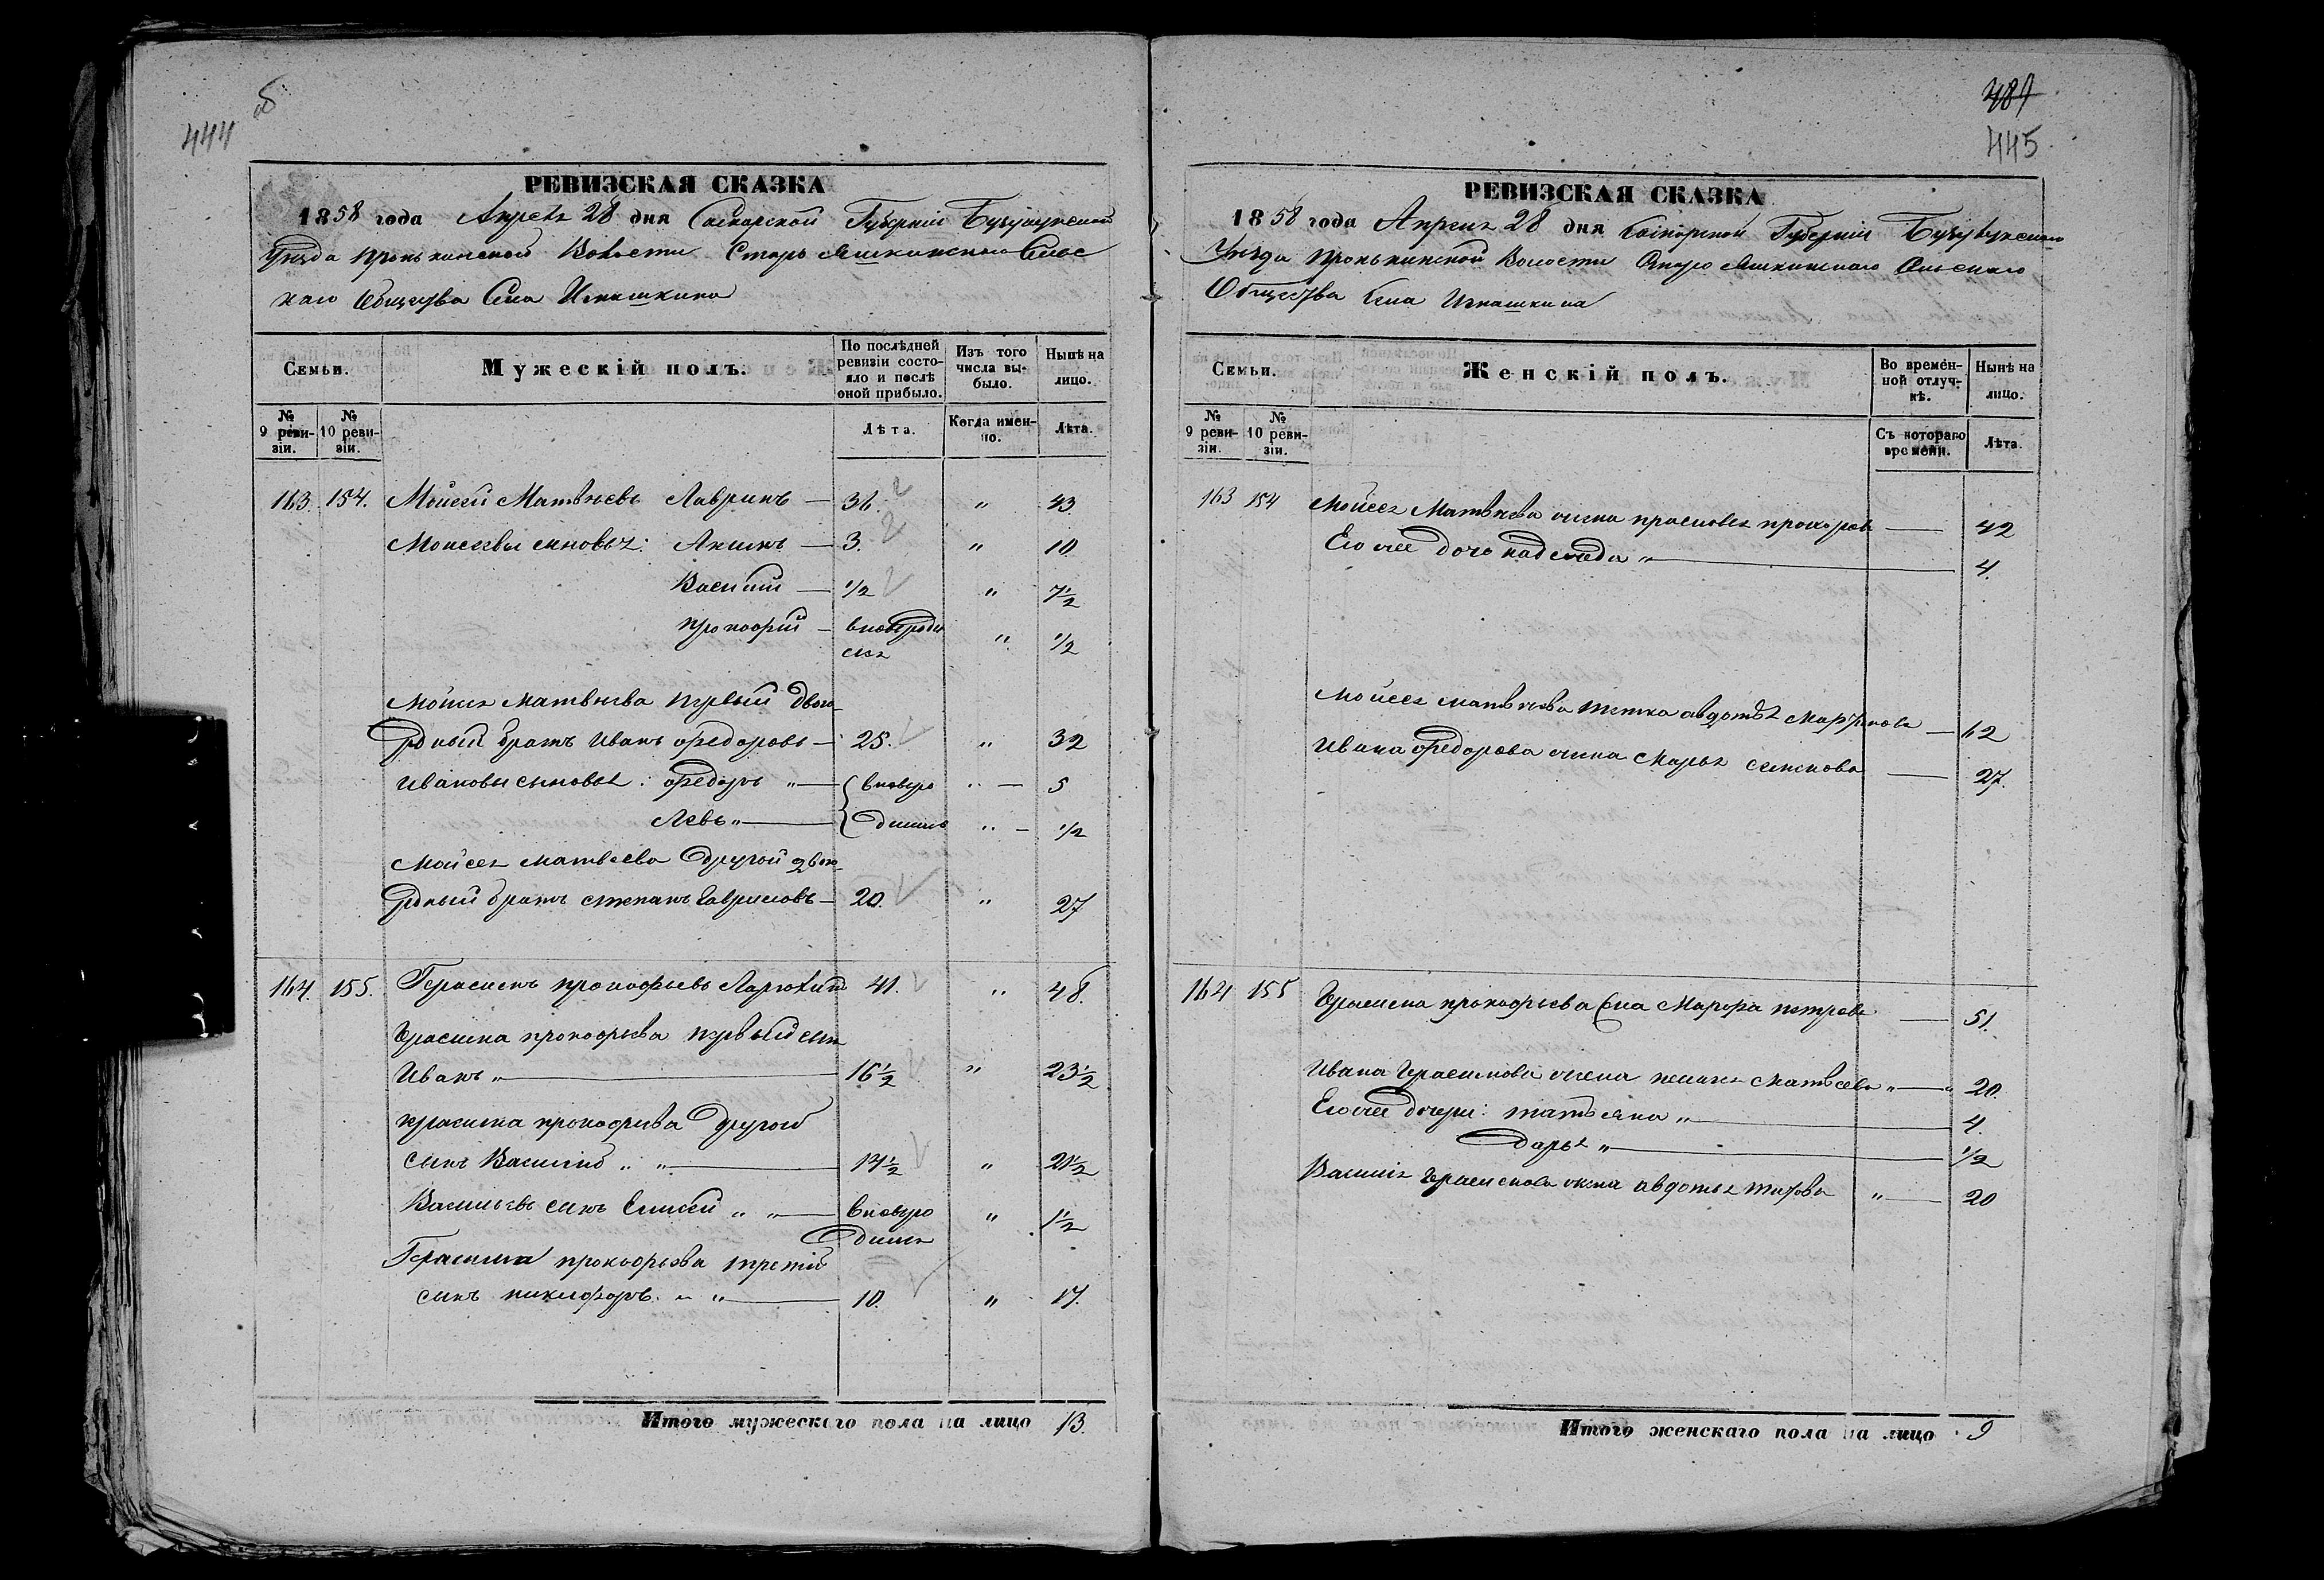 444
об
РЕВИЗСКАЯ СКАЗКА
1858 года Апреля 28 дня Самарской Губернии Бузулукскаго
Уезда Пронькинской Волости Старо Яшкинскаго Сельс
каго Общества Села Игнашкина
Семьи.
Мужескій полъ.
По послѣдней ревизіи состояло и послѣ оной прибыло.
Изъ того числа выбыло.
Нынѣ на лицо.
№ 9 ревизіи.
№ 10 ревизіи.
Лѣта.
Когда именно.
Лѣта.
163. 154. Мойсей Матвѣевъ Лавринъ — 36. " 43
Моисеевы сыновья: Акимъ — 3. " 10.
Василий — 1/2 " 7 1/2
Прокофий — вновь роди " 1/2
лся
Мойсея Матвѣева первый двою
родный братъ Иванъ Федоровъ — 25. " 32
Ивановы сыновья: Федоръ " — вновьро " — 5
Левъ " — дились " — 1/2
Мойсея Матвеева другой двою
родный братъ Степанъ Гавриловъ — 20. " 27
164. 155. Герасимъ Прокофьевъ Ларюхинъ 41. " 48.
Герасима Прокофьева первый сын
Иванъ " — 16 1/2 " 23 1/2
Герасима Прокофьева другой
сынъ Василий " " — 14 1/2 " 21 1/2
Васильевъ сынъ Елисей " " — вновьро " 1 1/2
дился
Герасима Прокофьева третий
сынъ Никифоръ. " " — 10. " 17.
Итого мужескаго пола на лицо 13.
487
445
РЕВИЗСКАЯ СКАЗКА
1858 года Апреля 28 дня Самарской Губернии Бузулукскаго
Уезда Пронькинской Волости Старо Яшкинскаго Сельскаго
Общества Села Игнашкина
Семьи.
Женскій полъ.
Во временной отлучкѣ.
Нынѣ на лицо.
№ 9 ревизіи.
№ 10 ревизіи.
Съ котораго времени.
Лѣта.
163 154 Мойсея Матвѣева жена Прасковья Прохорова — 42
Его же дочь Надежда " — 4.
Мойсея Матвѣева тетка Авдотья Мартынова — 62
Ивана Федорова жена Марья Семенова — 27.
164 155 Герасима Прокофьева жена Марфа Петрова — 51.
Ивана Герасимова жена Матвеева " — " 20.
Его же дочери: Татьяна " — 4.
Дарья " — 1/2
Василия Герасимова жена Авдотья Титова " — 20
Итого женскаго пола на лицо 9